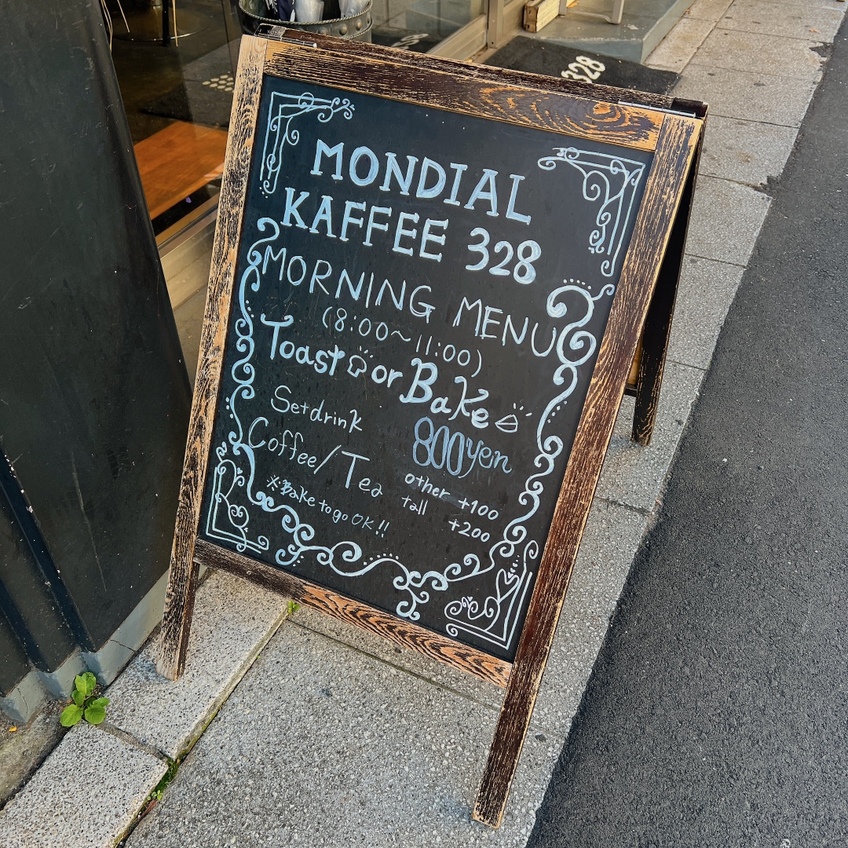 328
MONDIAL
KAFFEE 328
MORNING MENU
(8:00~11:00)
Toast or Bake
Set drink
800yen
Coffee/Tea
other +100
tall +200
※Bake to go OK!!